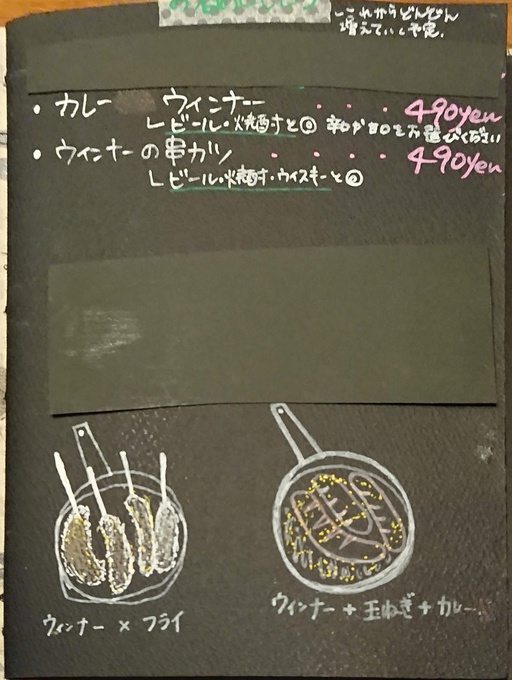 これからどんどん
増えていく予定。
・カレー ウィンナー ・・・・490yen
└ビール・焼酎と◎ 辛口か甘口をお選びください
・ウィンナーの串カツ ・・・・490yen
└ビール・焼酎・ウィスキーと◎
ウィンナー × フライ
ウィンナー + 玉ねぎ + カレー